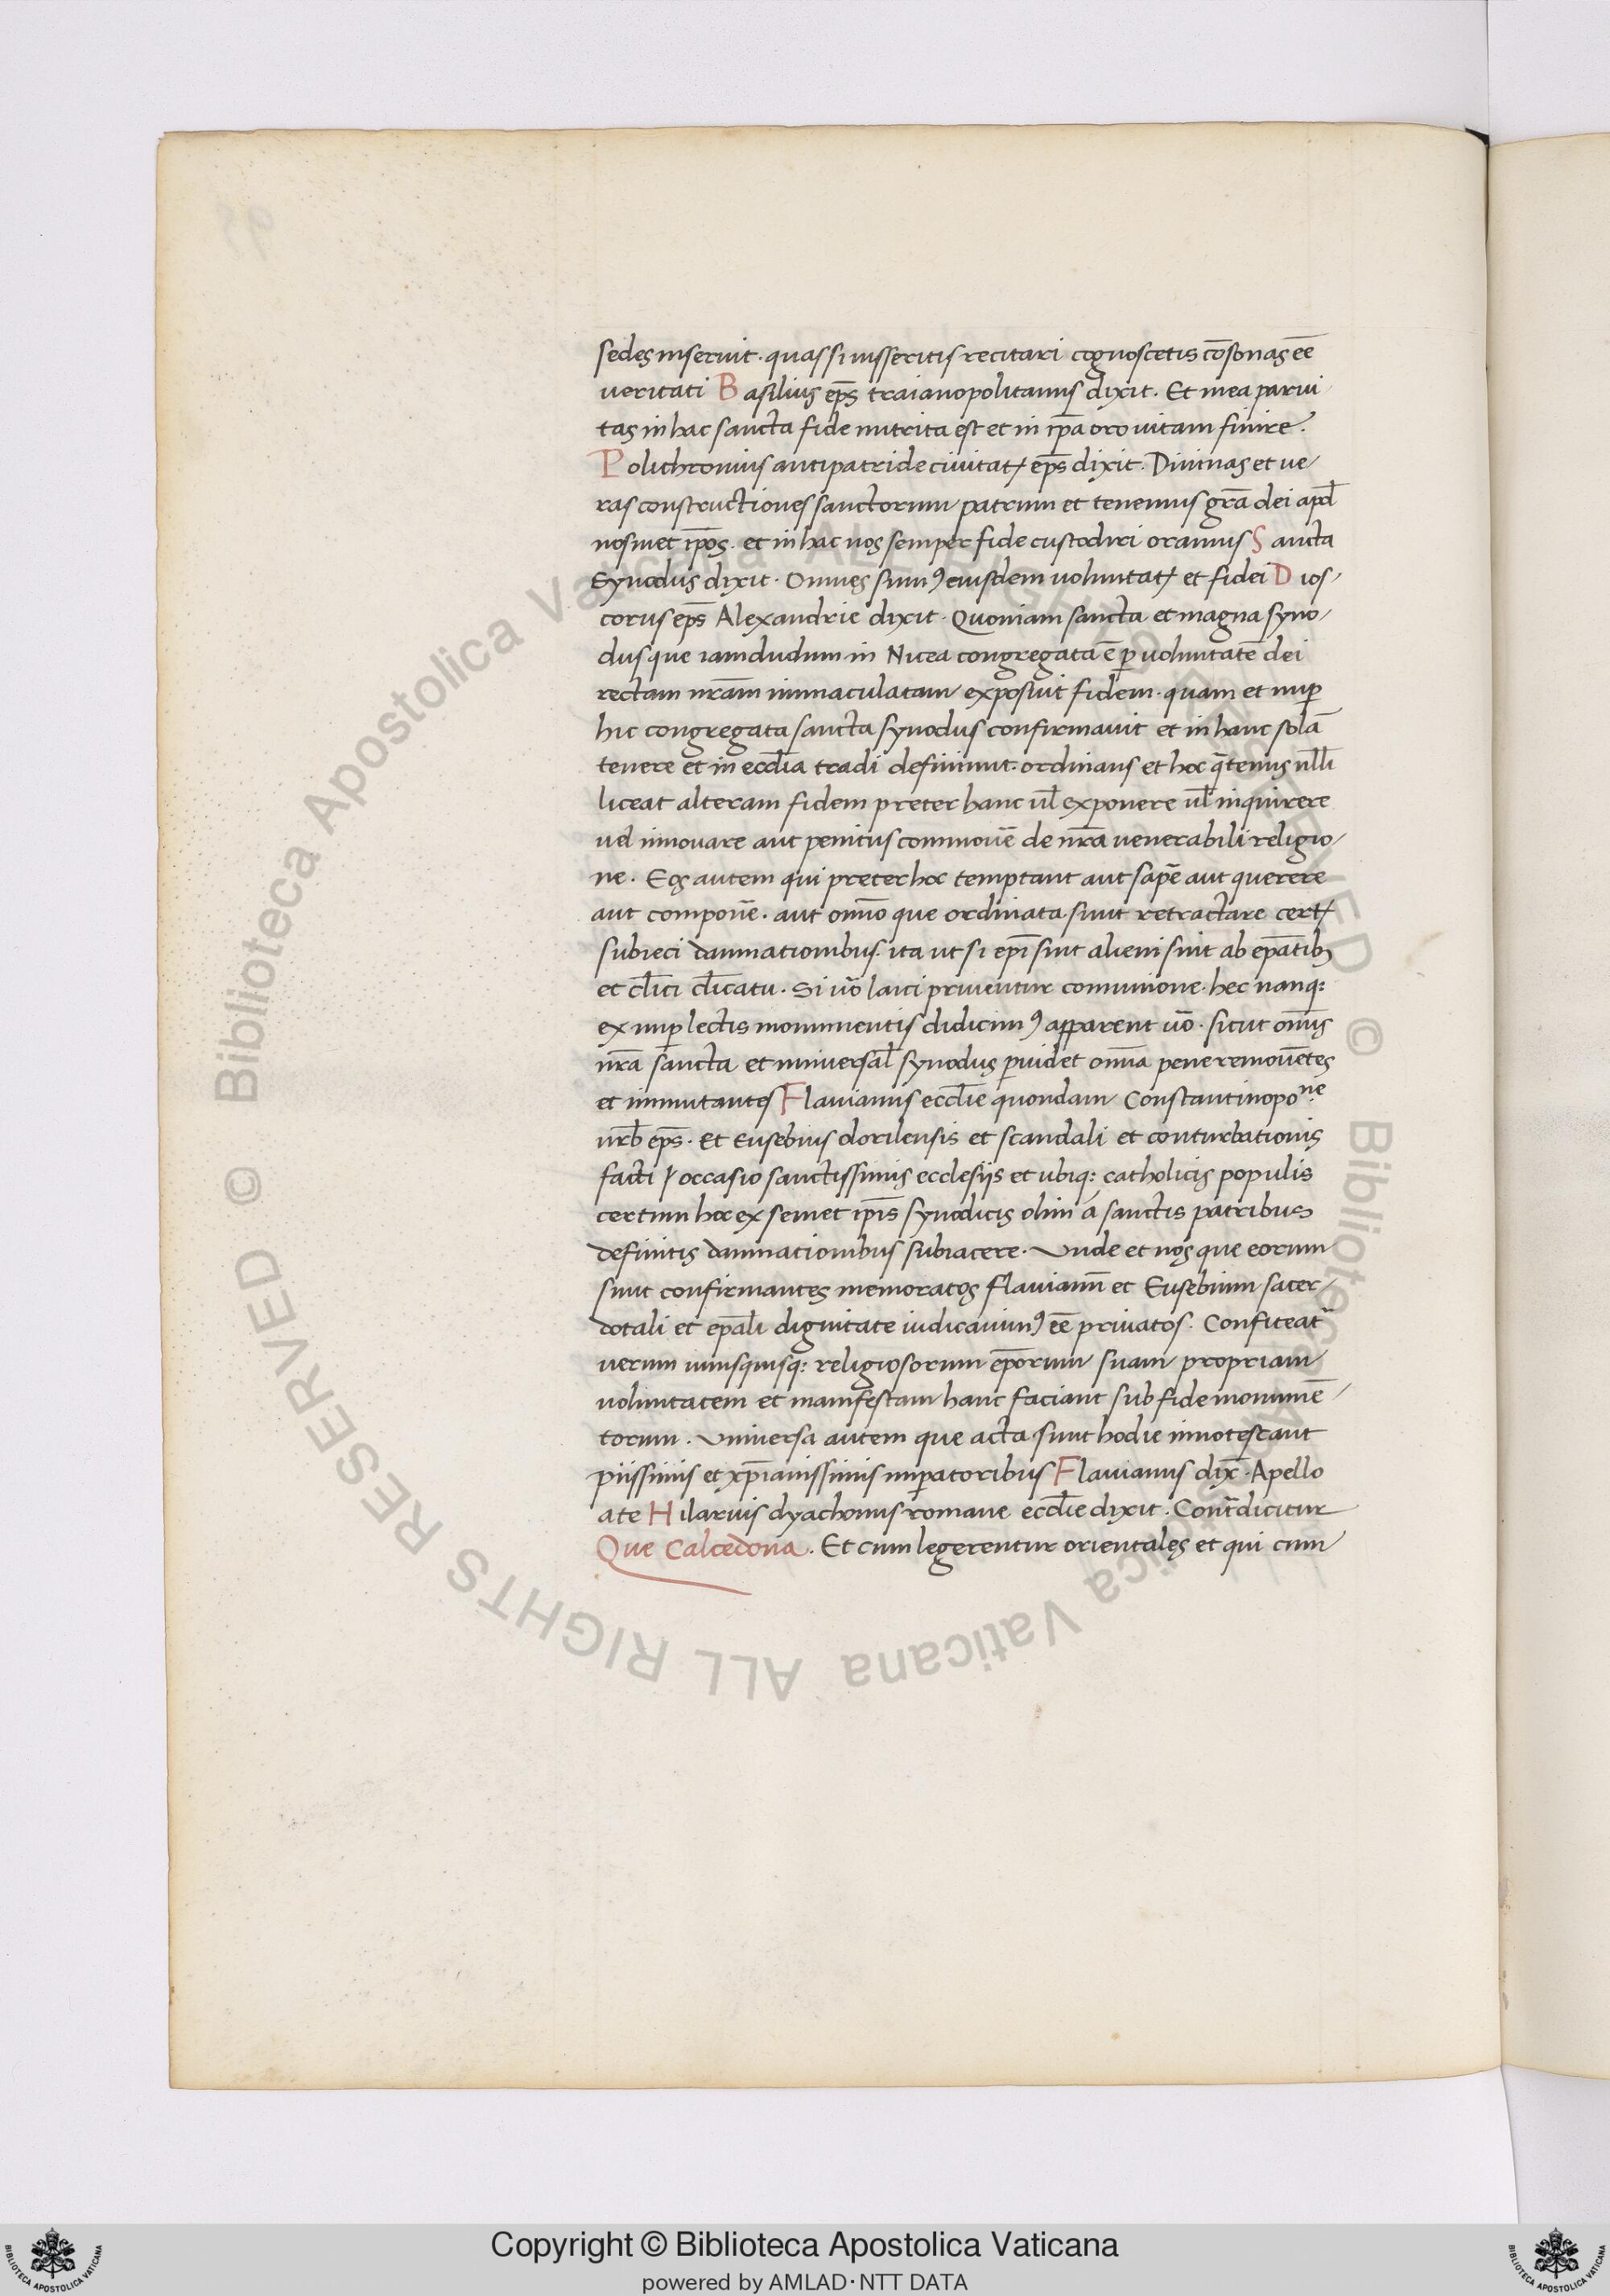 sedes inseruit. quas si iusseritis recitari cognoscetis cōsonas eē
veritati Basilius ep̄s traianopolitanus dixit. Et mea parui
tas in hac sancta fide nutrita est et in ip̄a oro uitam finire.
Polichronius antipatride ciuitatꝭ ep̄s dixit. Diuinas et ue/
ras constructiones sanctorum patrum et tenemus grā dei apđ
nosmet ip̄os. et in hac nos semper fide custodiri oramus Sancta
Synodus dixit. Omnes sumꝰ eiusdem uoluntatꝭ et fidei Dios/
corus ep̄s Alexandrie dixit. Quoniam sancta et magna syno/
dus que iamdudum in Nicea congregata ē ꝑ uoluntatē dei
rectam nrām immaculatam exposuit fidem. quam et nuꝑ
hic congregata sancta synodus confirmauit et in hanc solā
tenere et in eccl̄ia tradi definiuit. ordinans et hoc q̄tenus nłłi
liceat alteram fidem preter hanc uł exponere uł inquirere
uel innouare aut penitus commouē de nrā uenerabili religio/
ne. Eos autem qui preter hoc temptant aut sapē aut querere
aut componē. aut om̄o que ordinata sunt retractare certꝭ
subieci damnationibus. ita ut si ep̄i sint alieni sint ab ep̄atibꝫ
et cłici cłicatu. Si uō laici priuentur comunione. hec nanq:
ex nuꝑ lectis monumentis didicimꝰ apparent uō. sicut om̄is
nrā sancta et uniuersał synodus ꝑuidet om̄ia pene remouētes
et inmutantes Flauianus eccl̄ie quondam Constantinopoⁿᵉ
urb̄ ep̄s. Et Eusebius dorilensis et scandali et conturbationis
facti ſ occasio sanctissimis ecclesijs et ubiq: catholicis populis
certum hoc ex semet ip̄is synodicis olim a sanctis patribus
definitis damnationibus subiacere. Unde et nos que eorum
sunt confirmantes memoratos Flauianū et Eusebium sacer/
dotali et ep̄ali dignitate iudicauimꝰ eē priuatos. Confiteat᷑
uerum unusquisq: religiosorum ep̄orum suam propriam
uoluntatem et manifestam hanc faciant sub fide monumē/
torum. Uniuersa autem que acta sunt hodie innotescant
piissimis et xp̄ianissimis imꝑatoribus Flauianus dix̄. Apello
a te Hilarius dyachonus romane eccl̄ie dixit. Cont̄dicitur
Que Calcedona. Et cum legerentur orientales et qui cum
Copyright © Biblioteca Apostolica Vaticana
powered by AMLAD·NTT DATA
© Biblioteca Apostolica Vaticana ALL RIGHTS RESERVED
© Biblioteca Apostolica Vaticana ALL RIGHTS RESERVED